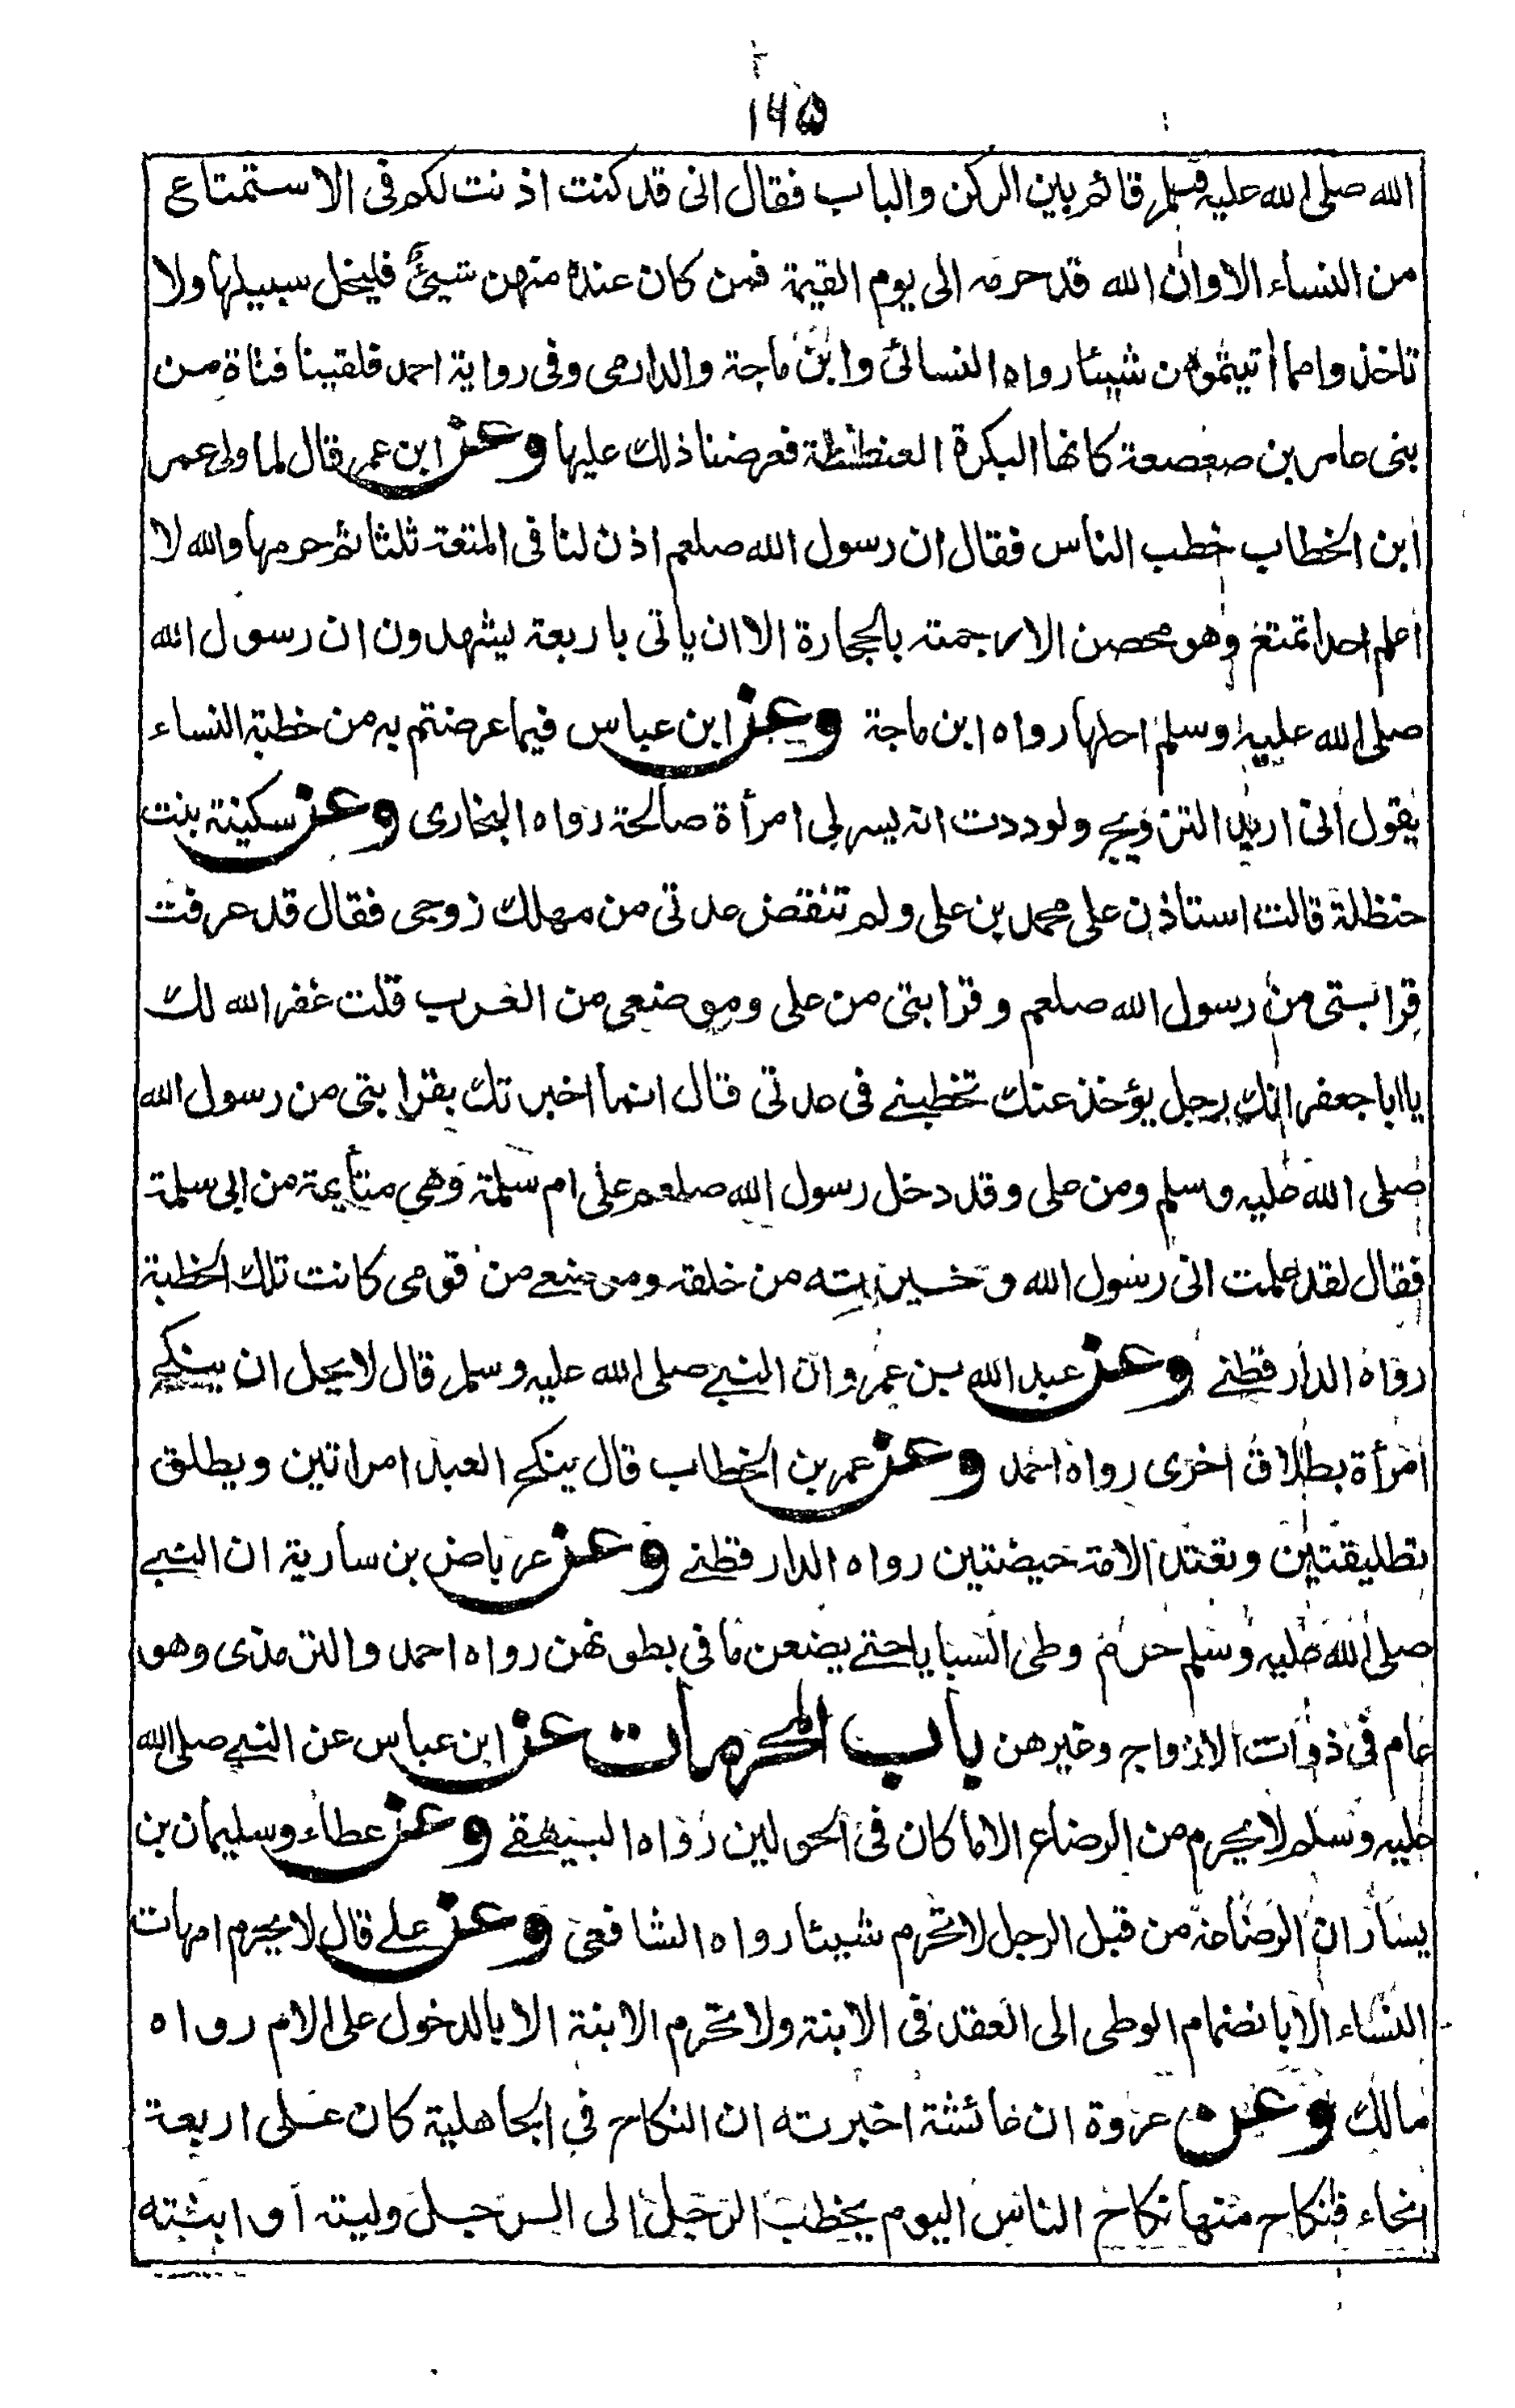 ١٦٥
الله صلى الله عليه وسلم قائم بين الركن والباب فقال انى قد كنت اذنت لكم فى الاستمتاع
من النساء الا وان الله قد حرمه الى يوم القيمة فمن كان عنده منهن شيئ فليخل سبيلها ولا
تاخذوا مما أتيتموهن شيئا رواه النسائى وابن ماجة والدارمى وفى رواية احمد فلقينا فتاة من
بنى عامر بن صعصعة كانها البكرة العنطنطة فعرضنا ذلك عليها وعن ابن عمر قال لما ولى عمر
ابن الخطاب خطب الناس فقال ان رسول الله صلعم اذن لنا فى المتعة ثلثا ثم حرمها والله لا
اعلم احدا تمتع وهو محصن الا رجمته بالحجارة الا ان ياتى باربعة يشهدون ان رسول الله
صلى الله عليه وسلم احلها رواه ابن ماجة وعن ابن عباس فيما عرضتم به من خطبة النساء
يقول انى اريد التزويج ولوددت انه يسر لى امرأة صالحة رواه البخارى وعن سكينة بنت
حنظلة قالت استاذن على محمد بن على ولم تنقض عدتى من مهلك زوجى فقال قد عرفت
قرابتى من رسول الله صلعم وقرابتى من على وموضعى من العرب قلت غفر الله لك
يا ابا جعفر انك رجل يؤخذ عنك تخطبنے فى عدتى قال انما اخبرتك بقرابتى من رسول الله
صلى الله عليه وسلم ومن على وقد دخل رسول الله صلعم على ام سلمة وهى متأيمة من ابى سلمة
فقال لقد علمت انى رسول الله وخيرته من خلقه وموضعے من قومى كانت تلك الخطبة
رواه الدارقطنے وعن عبد الله بن عمرو ان النبے صلى الله عليه وسلم قال لا يحل ان ينكح
امرأة بطلاق اخرى رواه احمد وعن عمر بن الخطاب قال ينكح العبد امراتين ويطلق
تطليقتين وتعتد الامة حيضتين رواه الدارقطنے وعن عرباض بن سارية ان النبے
صلى الله عليه وسلم حرم وطى السبايا حتے يضعن ما فى بطونهن رواه احمد والترمذى وهو
عام فى ذوات الازواج وغيرهن باب المحرمات عن ابن عباس عن النبے صلى الله
عليه وسلم لا يحرم من الرضاع الا ما كان فى الحولين رواه البيهقے وعن عطاء وسليمان بن
يسار ان الرضاعة من قبل الرجل لا تحرم شيئا رواه الشافعى وعن علے قال لا يحرم امهات
النساء الا بانضمام الوطى الى العقد فى الابنة ولا تحرم الابنة الا بالدخول على الام رواه
مالك وعن عروة ان عائشة اخبرته ان النكاح فى الجاهلية كان على اربعة
انحاء فنكاح منها نكاح الناس اليوم يخطب الرجل الى الرجل وليته او ابنته